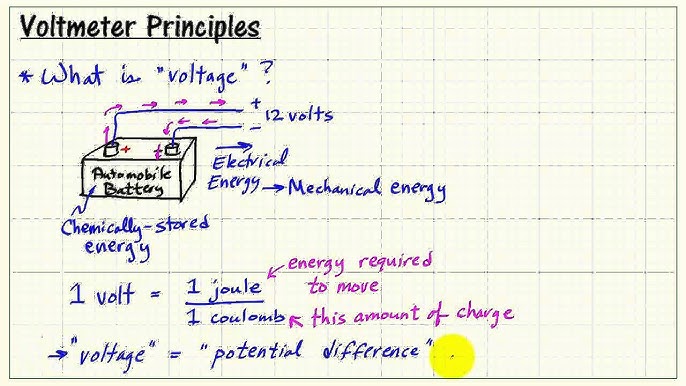 Voltmeter Principles
* What is "voltage" ?
+
12 volts
-
+
Automobile
Battery
Electrical
Energy → Mechanical energy
Chemically-stored
energy
energy required
to move
1 volt = 1 joule
1 coulomb
this amount of charge
→ "voltage" = "potential difference"